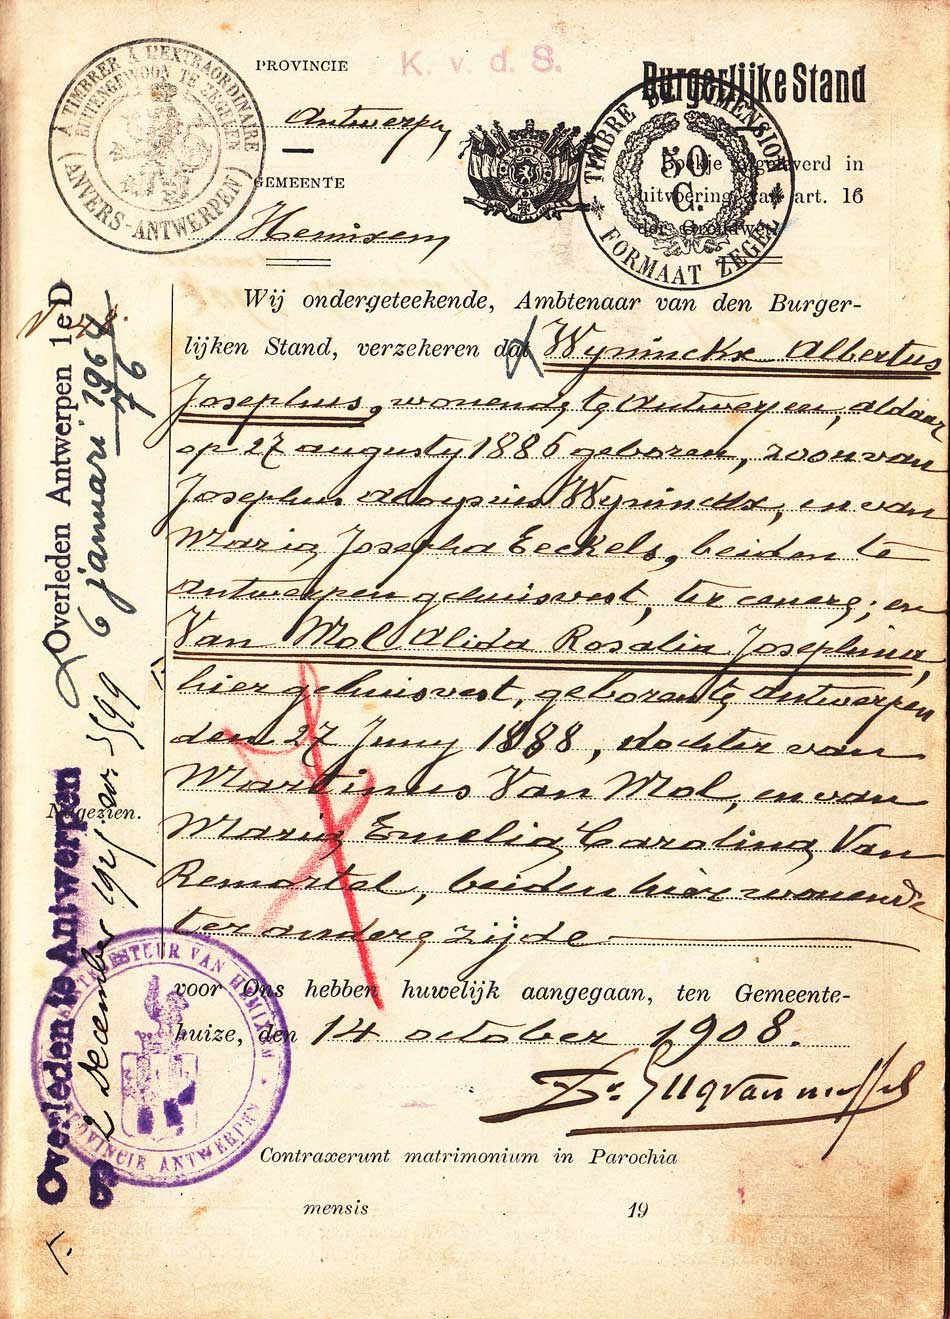 K. v. d. S.
PROVINCIE
Antwerpen
GEMEENTE
Hemixem
Burgerlijke Stand
Boekje afgeleverd in
uitvoering van art. 16
der Grondwet
A TIMBRER A L'EXTRAORDINAIRE
BUITENGEWOON TE ZEGELEN
(ANVERS-ANTWERPEN)
TIMBRE DE DIMENSION
50
C.
FORMAAT ZEGEL
Wij ondergeteekende, Ambtenaar van den Burger-
lijken Stand, verzekeren dat Wyninckx Albertus
Josephus, wonende te Antwerpen, aldaar
op 27 augusty 1886 geboren, zoon van
Josephus Aloysius Wyninckx, en van
Maria Josepha Eeckels, beiden te
Antwerpen gehuisvest, ter eenre; en
Van Mol Alida Rosalia Josephina,
hier gehuisvest, geboren te Antwerpen
den 27 Juny 1888, dochter van
Martinus Van Mol, en van
Maria Emelia Carolina Van
Remortel, beiden hier wonende
ter andere zijde
voor Ons hebben huwelijk aangegaan, ten Gemeente-
huize, den 14 october 1908.
Contraxerunt matrimonium in Parochia
mensis 19
Overleden Antwerpen 1e D
6 januari 1964
76
Nagezien.
Overleden te Antwerpen
8
2 december
599
BESTUUR VAN HEMIXEM
PROVINCIE ANTWERPEN